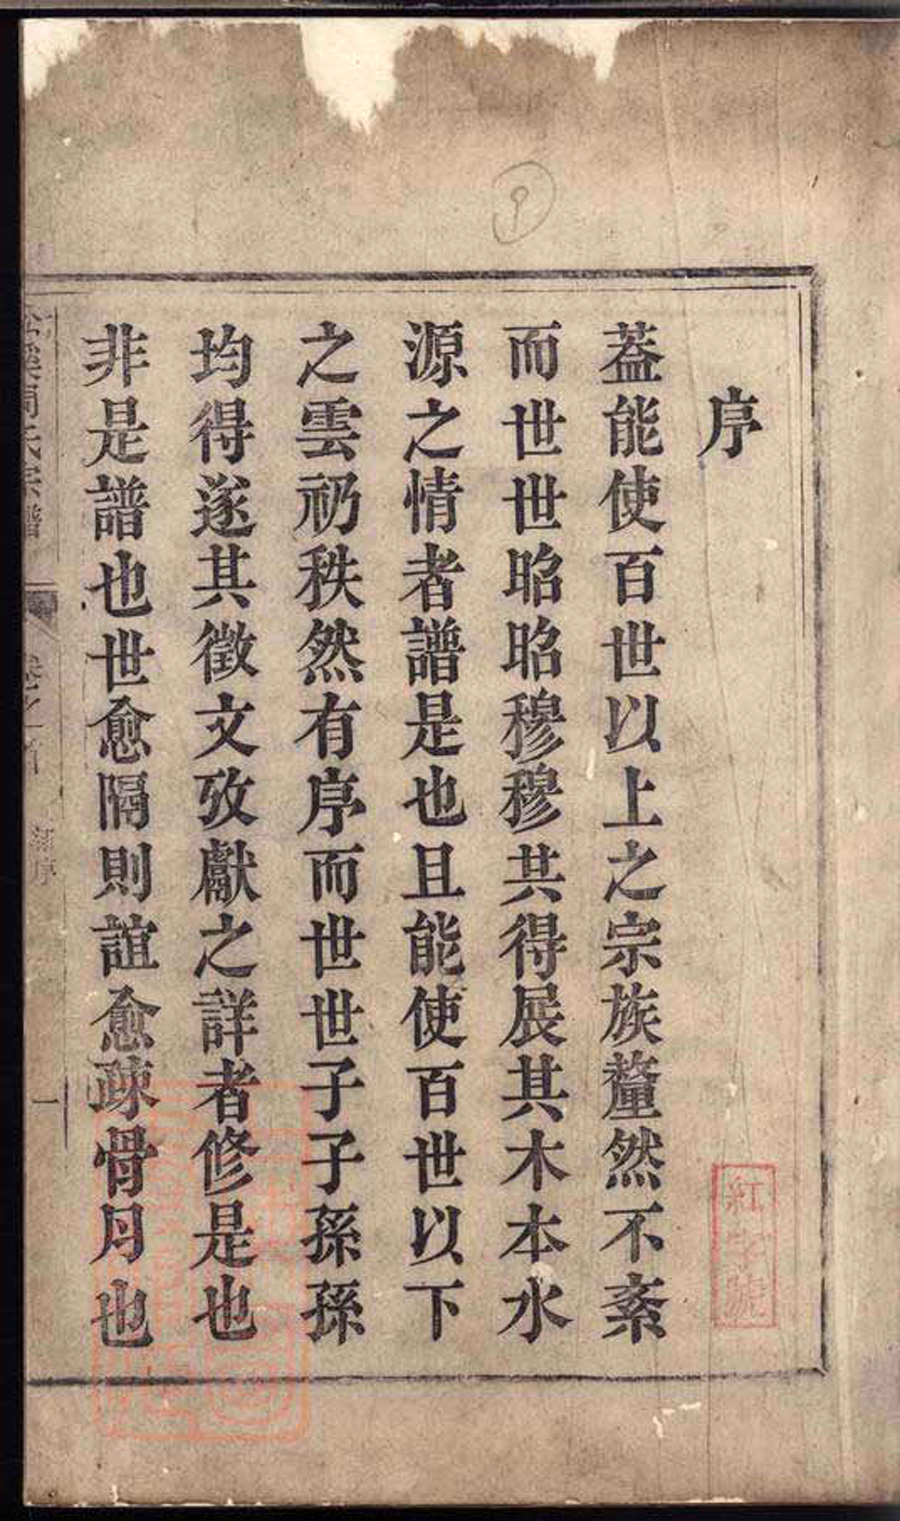 序
葢能使百世以上之宗族釐然不紊
而世世昭昭穆穆共得展其木本水
源之情者譜是也且能使百世以下
之雲礽秩然有序而世世子子孫孫
均得遂其徵文攷獻之詳者修是也
非是譜也世愈隔則誼愈疎骨月也
紅字號
氏宗譜
序
一